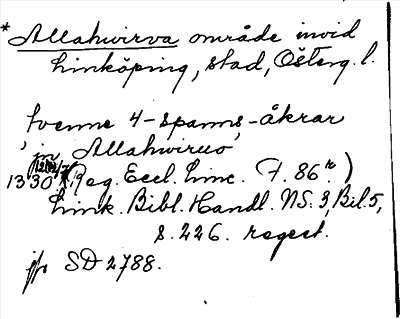 *Allahwirva område invid
Linköping, stad, Österg. l.
tvenne 4-spanns-åkrar
'in Allahwiruo'
1330 (Reg. Eccl. Linc. F. 86r)
Link. Bibl. Handl. NS. 3, Bil. 5,
s. 226. regest.
jfr SD 2788.